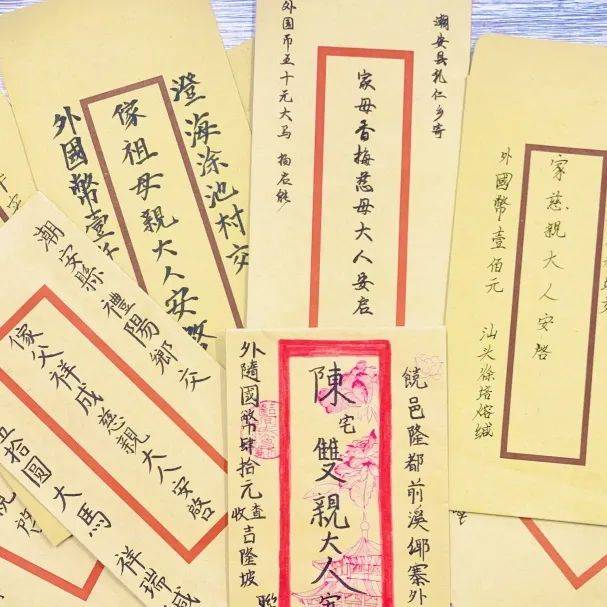 澄海涂池村交
傢祖母親大人安啓
外國幣壹
潮安县礼仁乡寄
家母香梅慈母大人安启
外国币五十元大马
家慈親大人安啓
外國幣壹佰元 汕头徐培熔缄
潮安縣禮陽鄉交
傢父祥成慈親大人安啓
五拾圆大馬祥瑞缄
饶邑隆都前溪椰寨外
陳宅雙親大人安
外隨國幣肆拾元查收吉隆坡